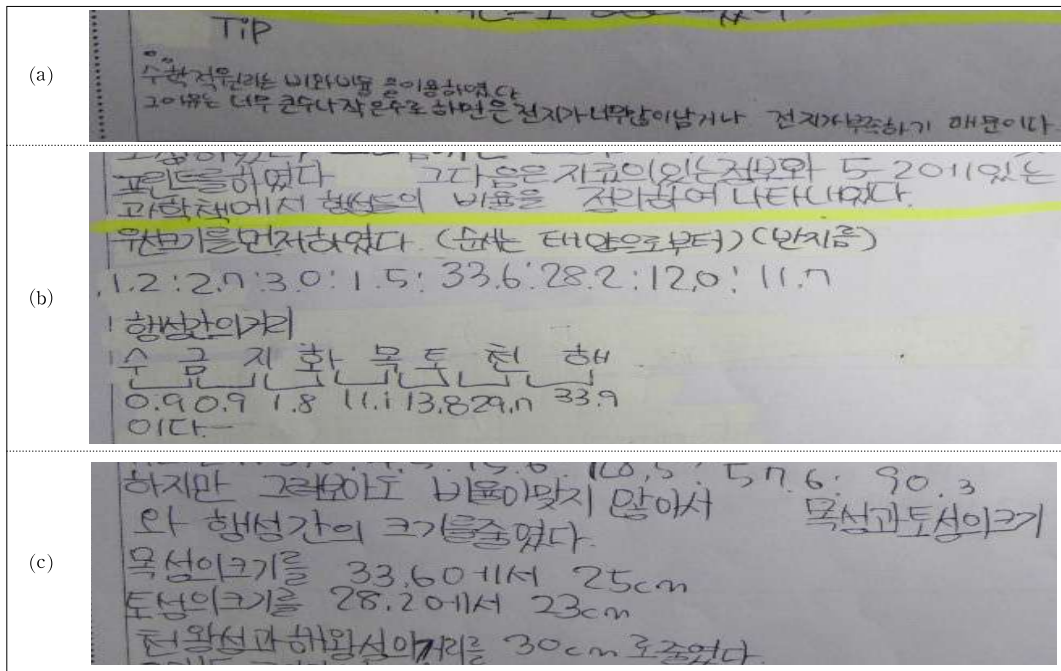 (a)
TiP
수학적원리는 비와비율 을이용하였다
그이유는 너무 큰수나 작은수로 하면은 전지가너무많이남거나 전지가부족하기 때문이다
(b)
프린트를하였다 그다음은 지표이있는전부와 5-2에있는
과학책에서 행성들의 비율을 정리하여 나타내었다.
우선크기를먼저하였다. (순서는 태양으로부터) (반지름)
1.2:2.7:3.0:1.5:33.6:28.2:12.0:11.7
행성간의거리
수 금 지 화 목 토 천 해
0.9 0.9 1.8 11.1 13.8 29.7 33.9
이다.
(c)
15.6 : 57.6 : 90.3
하지만 그래보아도 비율이맞지 않아서 목성과토성의크기
와 행성간의 크기를줄였다.
목성의크기를 33.6에서 25cm
토성의크기를 28.2에서 23cm
천왕성과해왕성의거리를 30cm로줄였다.